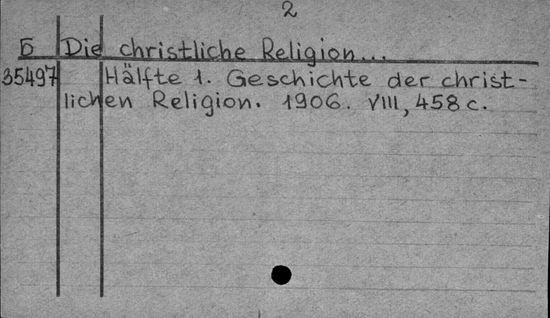 2
Б Die christliche Religion...
35497 Hälfte 1. Geschichte der christ-
lichen Religion. 1906. VIII, 458 c.